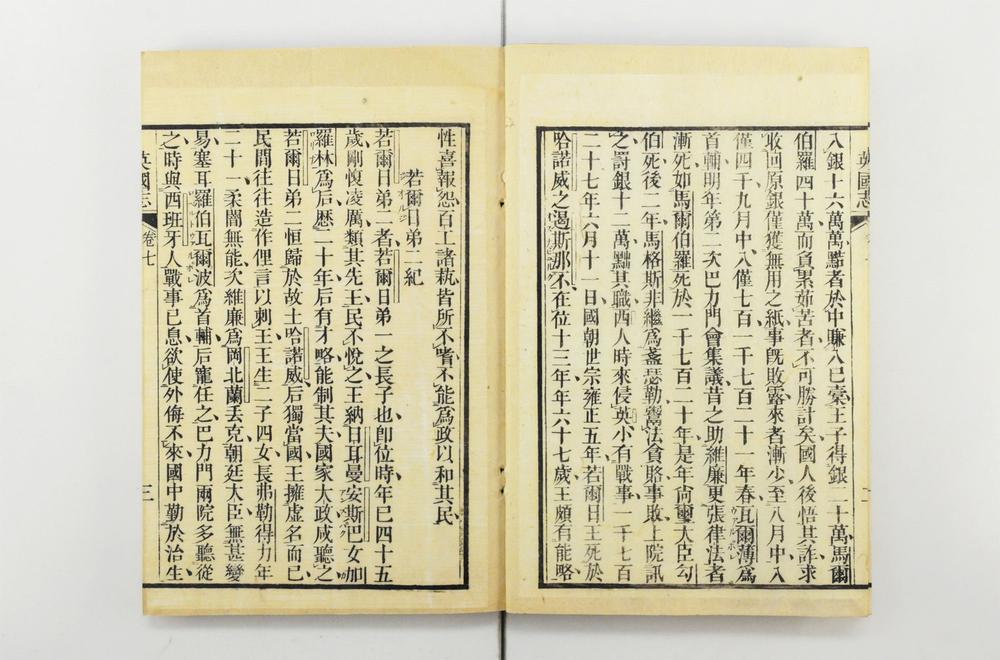 入銀十六萬萬黠者於中賺入已槖王子得銀二十萬馬爾
伯羅四十萬而負累茹苦者不可勝計矣國人後悟其詐求
收回原銀僅獲無用之紙事旣敗露來者漸少至八月中入
僅四千九月中入僅七百一千七百二十一年春瓦爾薄爲
首輔明年第二次巴力門會集議昔之助維廉更張律法者
漸死如馬爾伯羅死於一千七百二十年是年尙璽大臣勾
伯死後二年馬格斯非繼爲盞瑟勒鬻法貪賂事敗上院訊
之罰銀十二萬黜其職西人時來侵英小有戰事一千七百
二十七年六月十一日國朝世宗雍正五年若爾日王死於
哈諾威之渴斯那不在位十三年年六十七歲王頗有能略
英國志
性喜報怨百工諸執皆所不嗜不能爲政以和其民
若爾日弟二紀
若爾日弟二者若爾日弟一之長子也卽位時年已四十五
歲剛愎凌厲類其先王民不悅之王納日耳曼安斯巴女加
羅林爲后歷二十年后有才略能制其夫國家大政咸聽之
若爾日弟二恒歸於故土哈諾威后獨當國王擁虛名而已
民間往往造作俚言以刺王王生二子四女長弗勒得力年
二十一柔闇無能次維廉爲岡北蘭丟克朝廷大臣無甚變
易塞耳羅伯瓦爾波爲首輔后寵任之巴力門兩院多聽從
之時與西班牙人戰事已息欲使外侮不來國中勤於治生
英國志
卷七
三